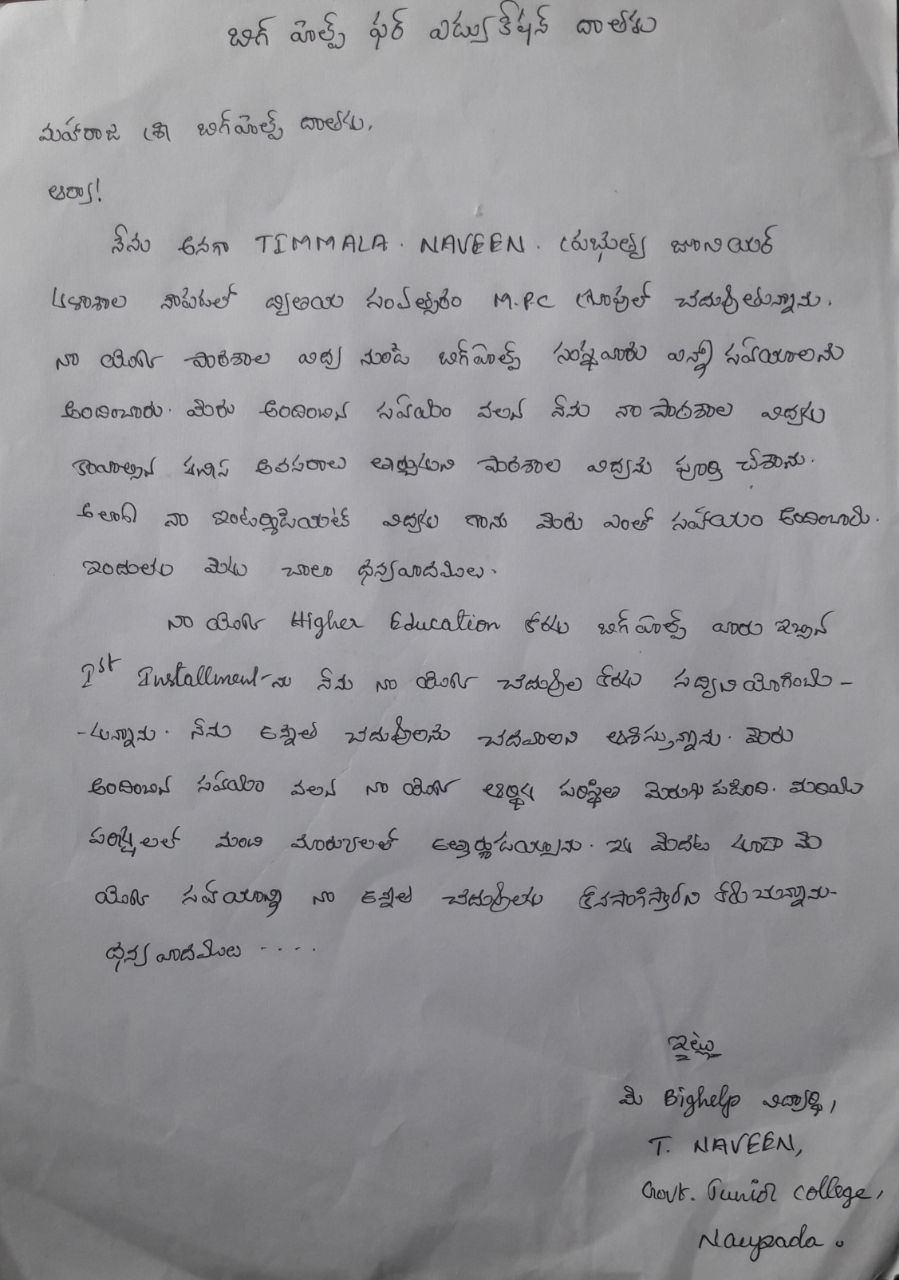 బిగ్ హెల్ప్ ఫర్ ఎడ్యుకేషన్ దాతకు
మహారాజ శ్రీ బిగ్‌హెల్ప్ దాతకు,
ఆర్యా!
నేను అనగా TIMMALA. NAVEEN. ప్రభుత్వ జూనియర్
కళాశాల నౌపడలో ద్వితీయ సంవత్సరం M.P.C గ్రూపులో చదువుతున్నాను.
నా యొక్క పాఠశాల విద్య నుండి బిగ్‌హెల్ప్ సంస్థవారు ఎన్నో సహాయాలను
అందించారు. మీరు అందించిన సహాయం వలన నేను నా పాఠశాల విద్యకు
కావాల్సిన కనీస అవసరాలు తీర్చుకుని పాఠశాల విద్యను పూర్తి చేశాను.
అలాగే నా ఇంటర్మీడియట్ విద్యకు గాను మీరు ఎంతో సహాయం అందించారు.
ఇందుకు మీకు చాలా ధన్యవాదములు.
నా యొక్క Higher Education కొరకు బిగ్‌హెల్ప్ వారు ఇచ్చిన
1st Installment-ను నేను నా యొక్క చదువుల కొరకు సద్వినియోగించు-
-కున్నాను. నేను ఉన్నత చదువులను చదవాలని ఆశిస్తున్నాను. మీరు
అందించిన సహాయం వలన నా యొక్క ఆర్థిక పరిస్థితి మెరుగు పడింది. మరియు
పరీక్షలలో మంచి మార్కులతో ఉత్తీర్ణుడయ్యాను. ఇక మీదట కూడా మీ
యొక్క సహాయాన్ని నా ఉన్నత చదువులకు కొనసాగిస్తారని కోరుచున్నాను-
ధన్యవాదములు ....
ఇట్లు
మీ Bighelp విద్యార్థి,
T. NAVEEN,
Govt. Junior college,
Naupada.